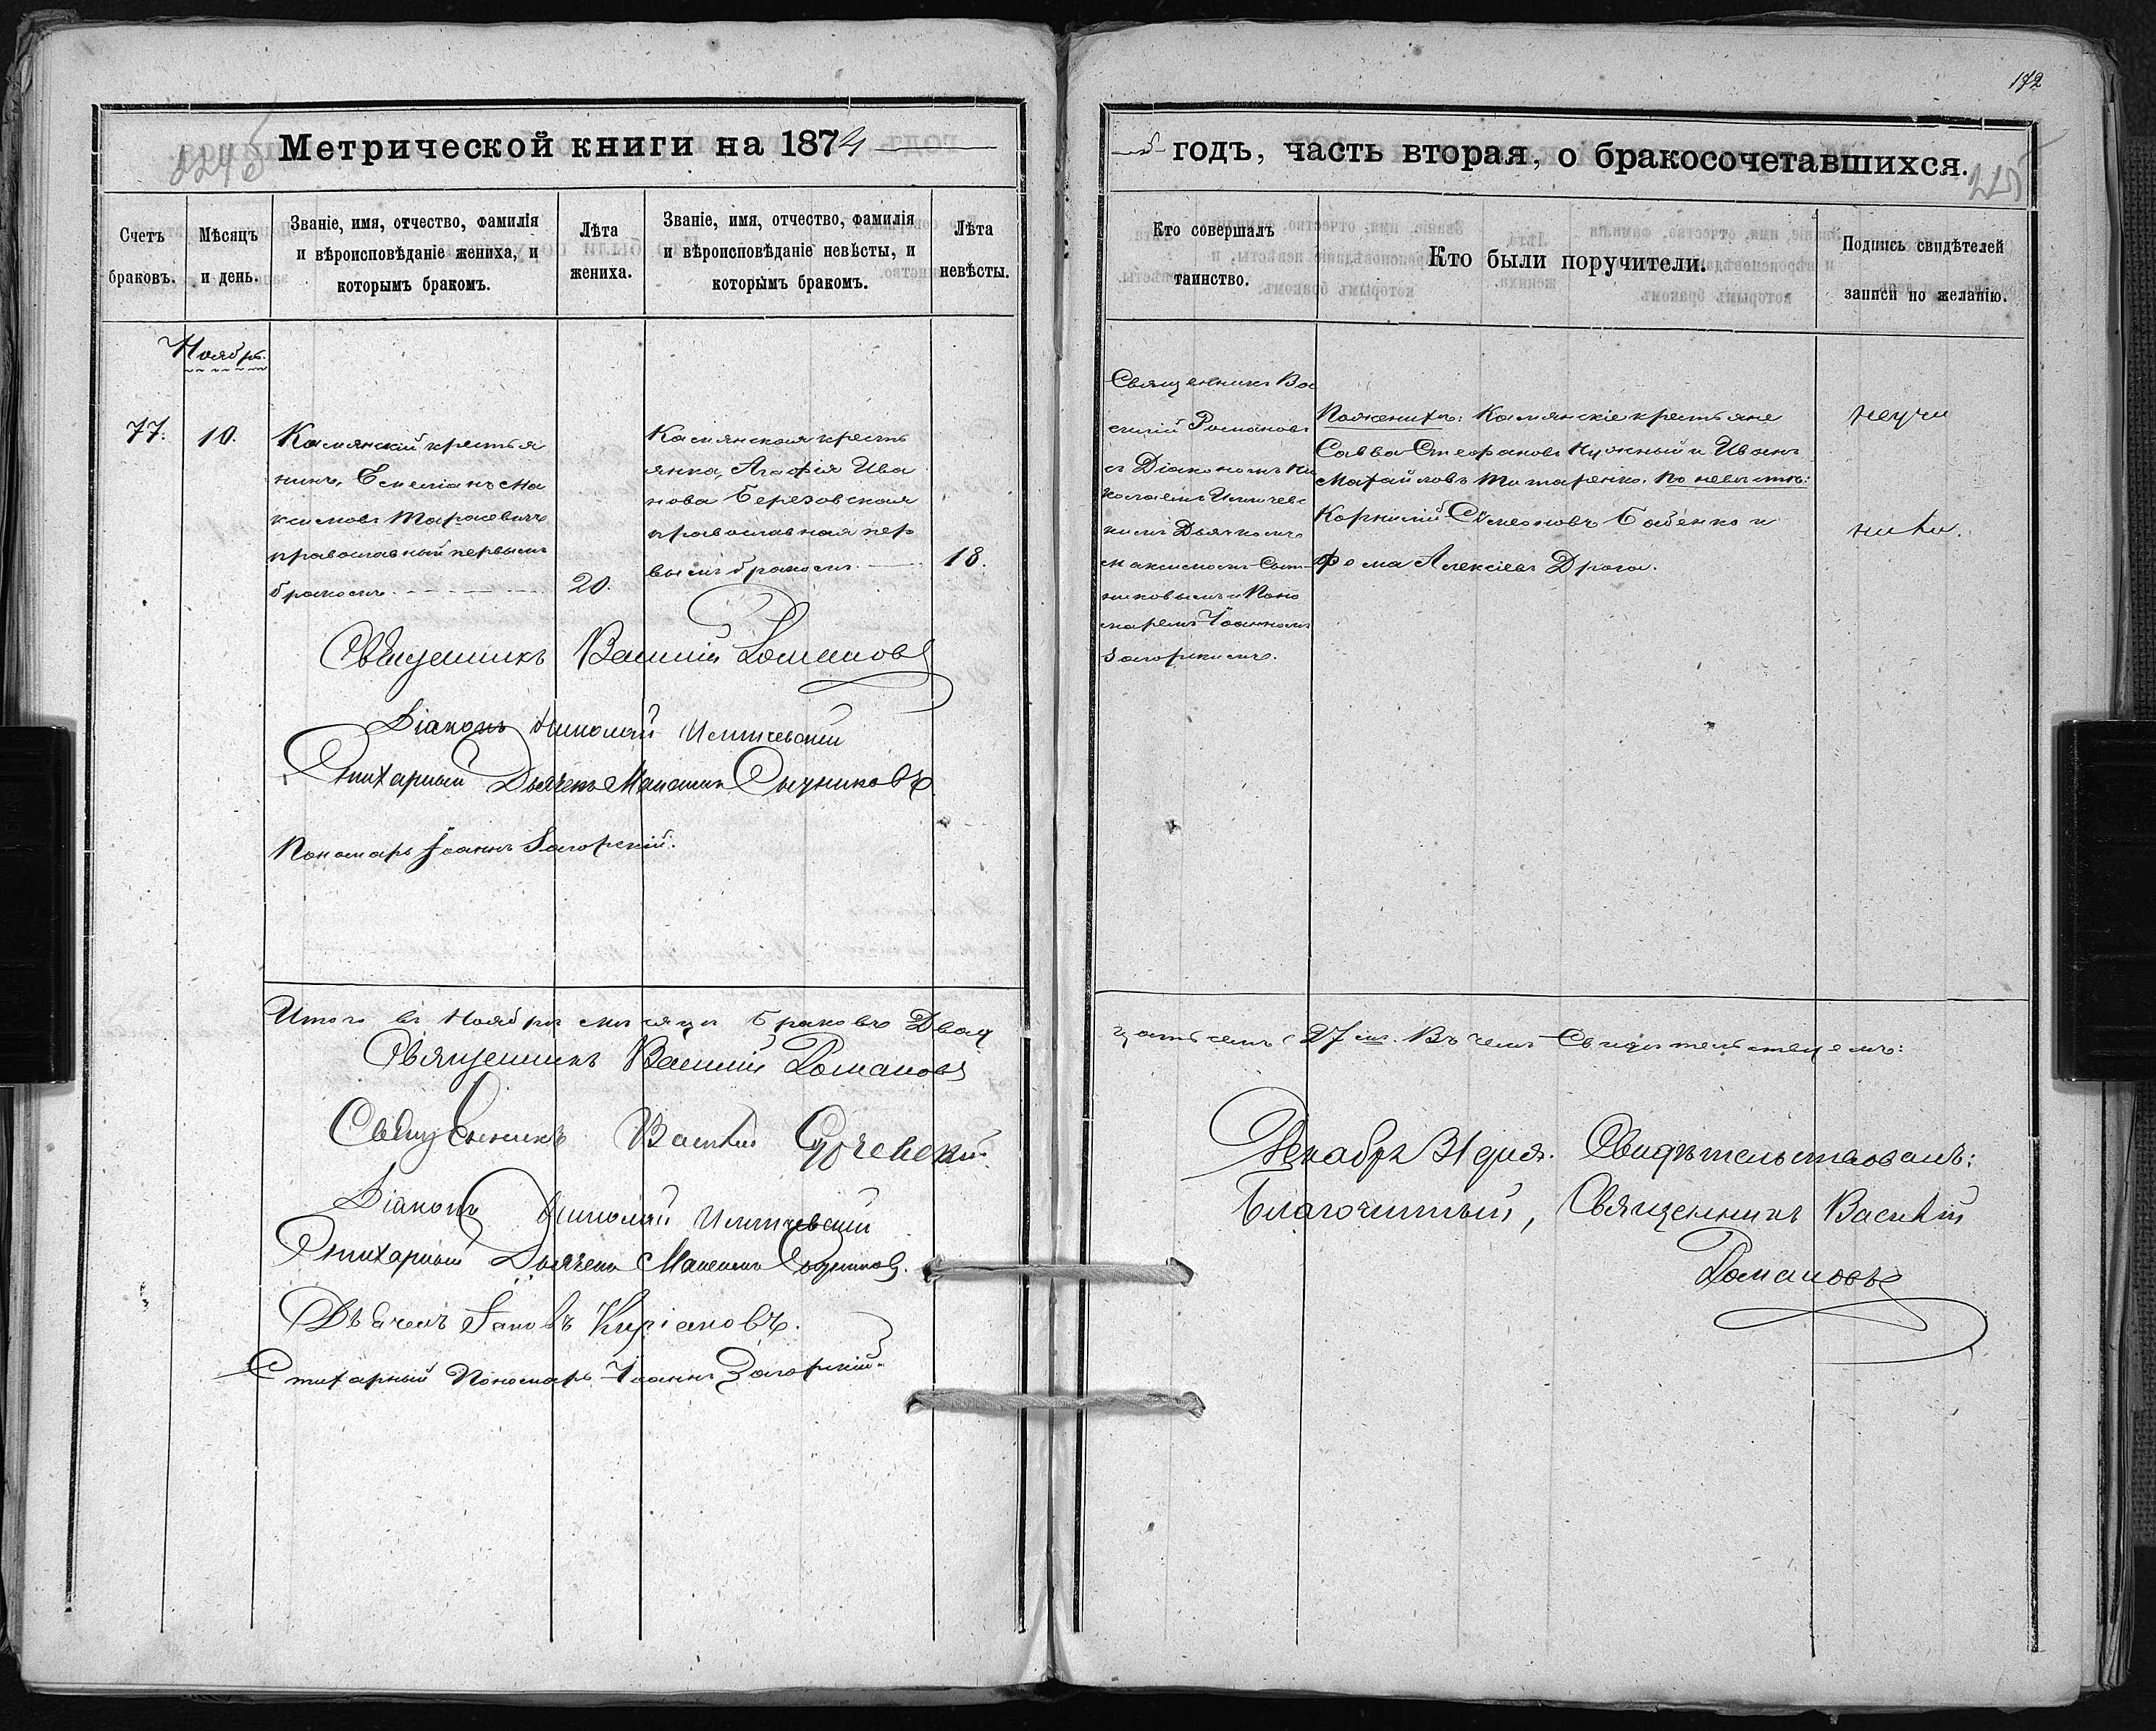 172
Метрической книги на 1874
й годъ, часть вторая, о бракосочетавшихся.
Счетъ браковъ.
Мѣсяцъ и день.
Званіе, имя, отчество, фамилія
и вѣроисповѣданіе жениха, и
которымъ бракомъ.
Лѣта
жениха.
Званіе, имя, отчество, фамилія
и вѣроисповѣданіе невѣсты, и
которымъ бракомъ.
Лѣта
невѣсты.
Кто совершалъ
таинство.
Кто были поручители.
Подпись свидѣтелей
записи по желанію.
Ноябрь.
77.
10.
Камянскій крестья
нинъ, Емеліанъ Ма
ксимовъ Тарасевичъ
православный первымъ
бракомъ.
20.
Камянская кресть
янка, Агафія Ива
нова Березовская
православная пер
вымъ бракомъ.
18.
Священникъ Ва
силій Романовъ
съ Діакономъ Ни
колаемъ
кимъ Дьячкомъ
Максимомъ Сыт
никовымъ и Поно
маремъ Іоанномъ
Загорскимъ.
По женихѣ: Камянскіе крестьяне
Савва Стефановъ Нужный и Иванъ
Титаренко. По невѣстѣ:
Корнилій Симеоновъ Бабенко и
Фома Алексіевъ Драга.
неучи
нили.
Священникъ Василій Романовъ
Діаконъ Николай
Стихарный Дьячекъ Максимъ Сытниковъ
Пономарь Іоаннъ Загорскій.
Итого въ Ноябрѣ мѣсяцѣ браковъ Двад
цать семь (27 мь. Въ чемъ Свидѣтельствуемъ:
Священникъ Василій Романовъ
Священникъ Василій
Діаконъ Николай
Стихарный Дьячекъ Максимъ Сытниковъ.
Дьячекъ Іаковъ Киріановъ.
Стихарный Пономарь Іоаннъ Загорскій.
Декабря 31 дня. Свидѣтельствовалъ:
Благочинный, Священникъ Василій
Романовъ